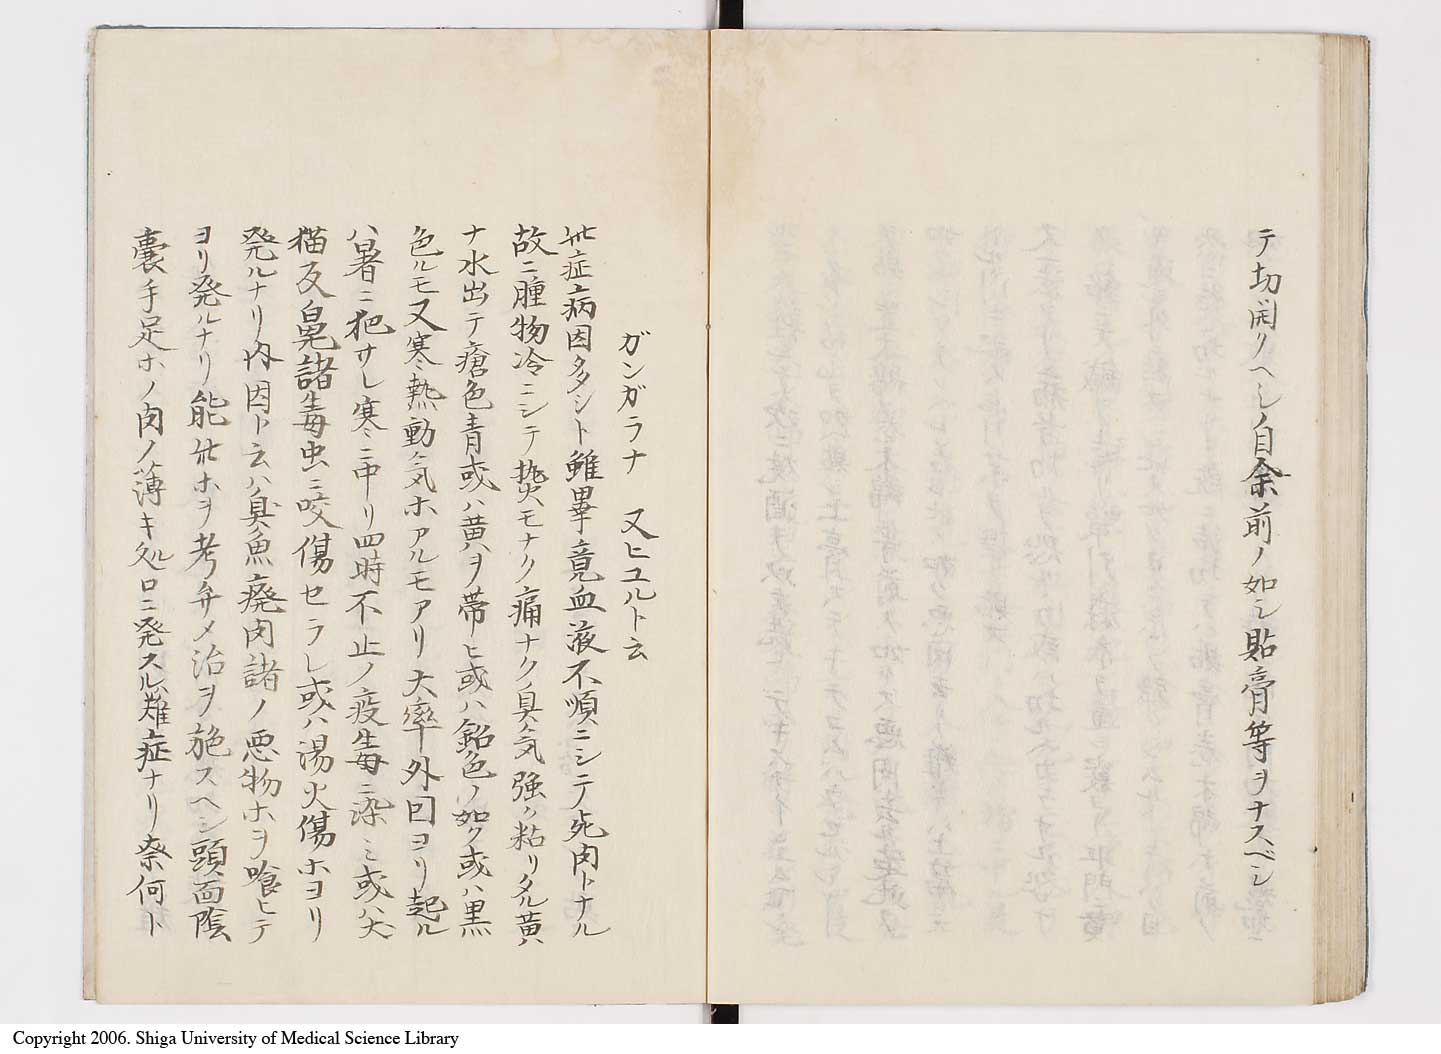 テ切開クヘシ自余前ノ如シ貼膏等ヲナスベシ
ガンガラナ 又ヒユルト云
此症病因多シト雖畢竟血液不順ニシテ死肉トナル
故ニ腫物冷ニシテ焮モナク痛ナク臭気強ク粘リタル黄
ナ水出テ瘡色青或ハ黄ヲ帯ヒ或ハ鉛色ノ如ク或ハ黒
色ルモ又寒熱動気ホアルモアリ大率外因ヨリ起ル
ハ暑ニ犯サレ寒ニ中リ四時不止ノ疫毒ニ染ミ或ハ犬
猫及鼠諸毒虫ニ咬傷セラレ或ハ湯火傷ホヨリ
発ルナリ内因ト云ハ臭魚廃肉諸ノ悪物ホヲ喰ヒテ
ヨリ発ルナリ能此ホヲ考弁メ治ヲ施スヘシ頭面陰
嚢手足ホノ肉ノ薄キ処ロニ発スル難症ナリ奈何ト
Copyright 2006. Shiga University of Medical Science Library